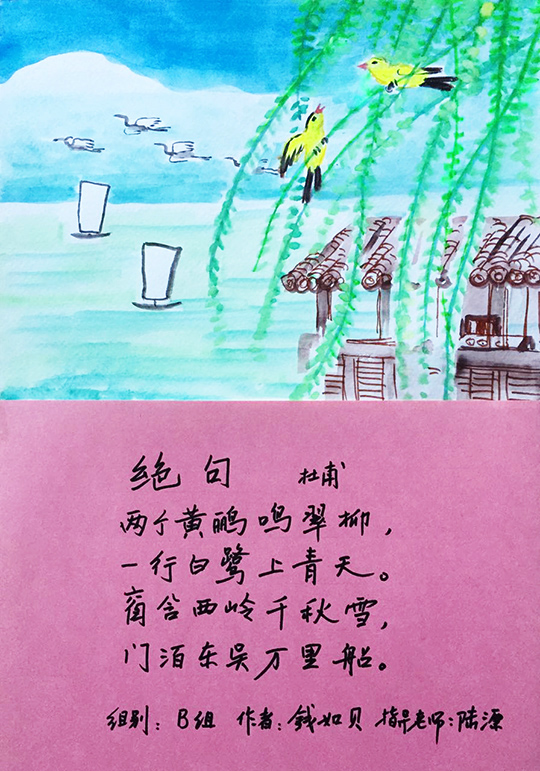 绝句 杜甫
两个黄鹂鸣翠柳,
一行白鹭上青天。
窗含西岭千秋雪,
门泊东吴万里船。
组别: B组 作者: 钱如贝 指导老师: 陆源